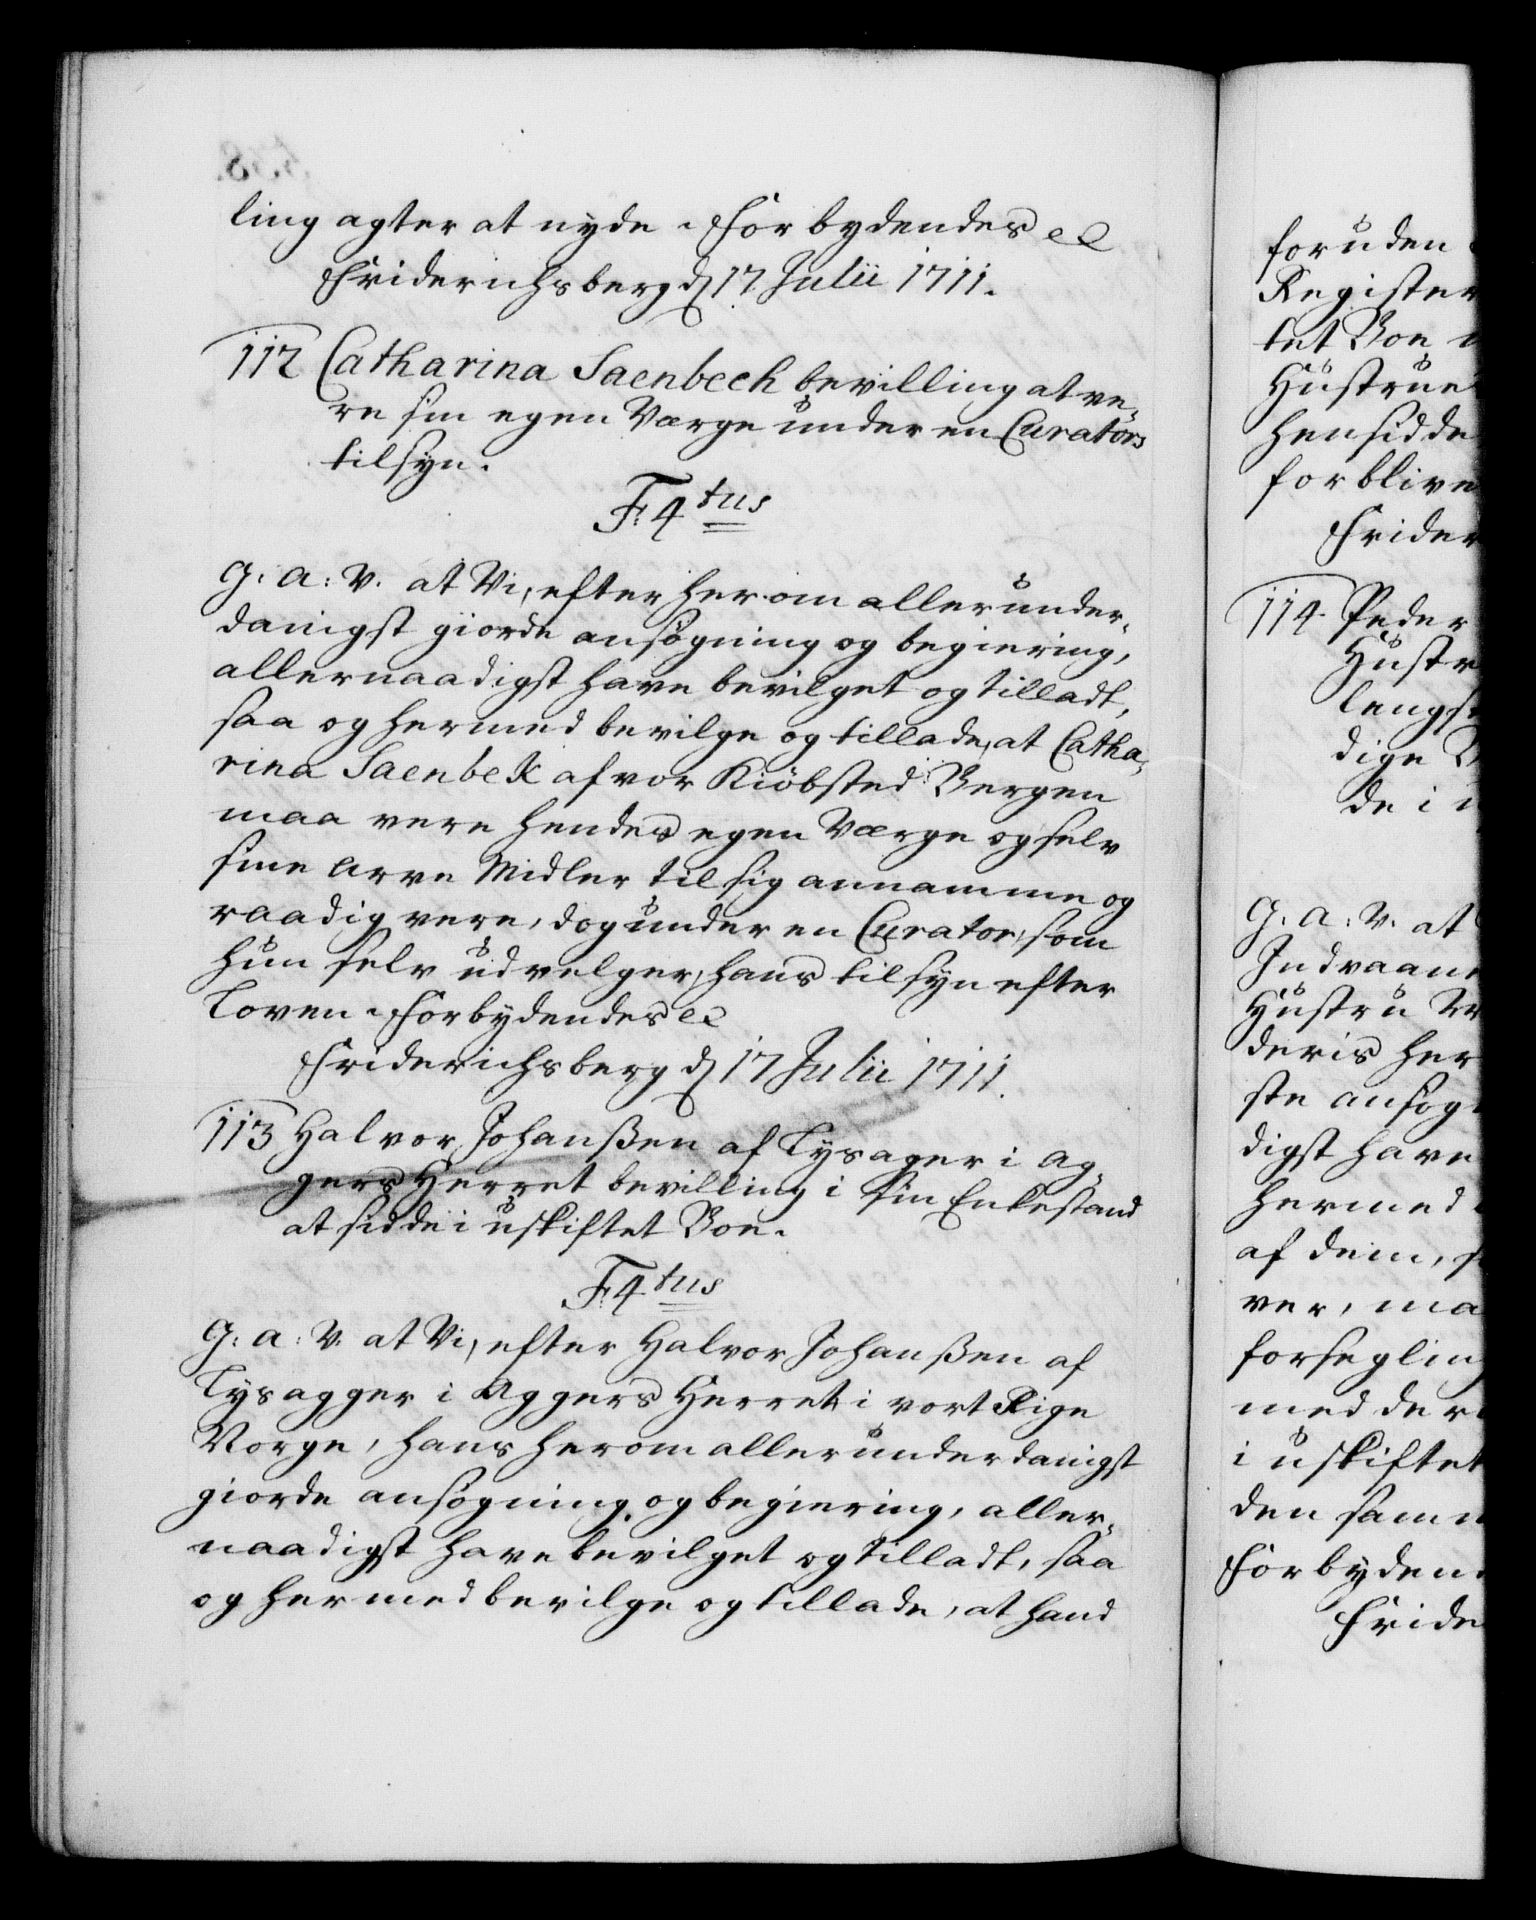 ling agter at nyde. Forbydendes etc
Friderichsberg d 17 Julii 1711.
112 Catharina Saenbech bevilling at ve-
re sin egen Værge under en Curators
tilsyn.
F: 4tus
G: A: V. at Vi, efter her om allerunder-
danigst giorde ansøgning og begiering,
allernaadigst have bevilget og tilladt,
saa og hermed bevilge og tillade, at Catha-
rina Saenbek af vor Kiöbsted Bergen
maa vere hendes egen Værge og selv
sine Arve Midler til sig annamme og
raadig vere, dog under en Curator, som
hun selv udvelger, hans tilsyn efter
Loven. Forbydendes etc
Friderichsberg d 17 Julii 1711.
113 Halvor Johanßen af Lysager i Ag-
gers Herret bevilling i sin Enkestand
at sidde i uskiftet Boe.
F: 4tus
G: A: V. at Vi, efter Halvor Johanßen af
Lysagger i Aggers Herret i vort Rige
Norge, hans herom allerunderdanigst
giorde ansøgning og begiering, aller-
naadigst have bevilget og tilladt, saa
og hermed bevilge og tillade, at hand
foruden
Register
tet Boe
Hustrue
hensidde
forblive
Frider
114. Peder
Hustr
lengst
dige
de i
G: A: V. at
Indvaane
Hustru
deris her
ste ansøg
digst have
hermed
af dem, s
ver, ma
forsegling
med der
i uskiftet
den samm
Forbyden
Fride